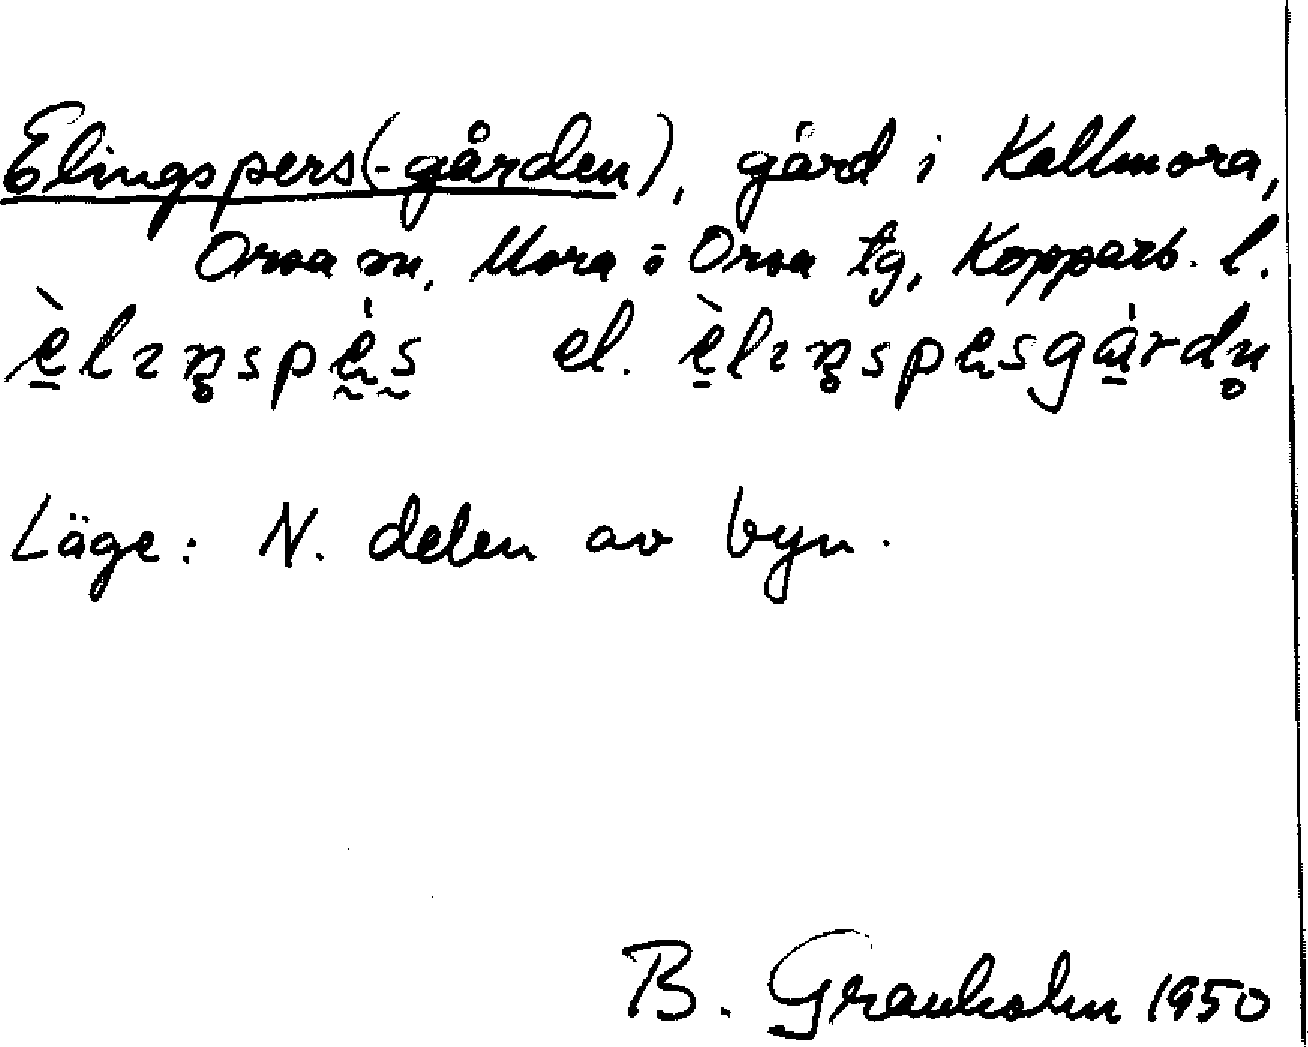 Elingspers(-gården), gård i Kallmora,
Orsa sn, Mora o Orsa tg, Kopparb. l.
èlɪŋspès el. èlɪŋspesgárdn
Läge: N. delen av byn.
B. Granholm 1950